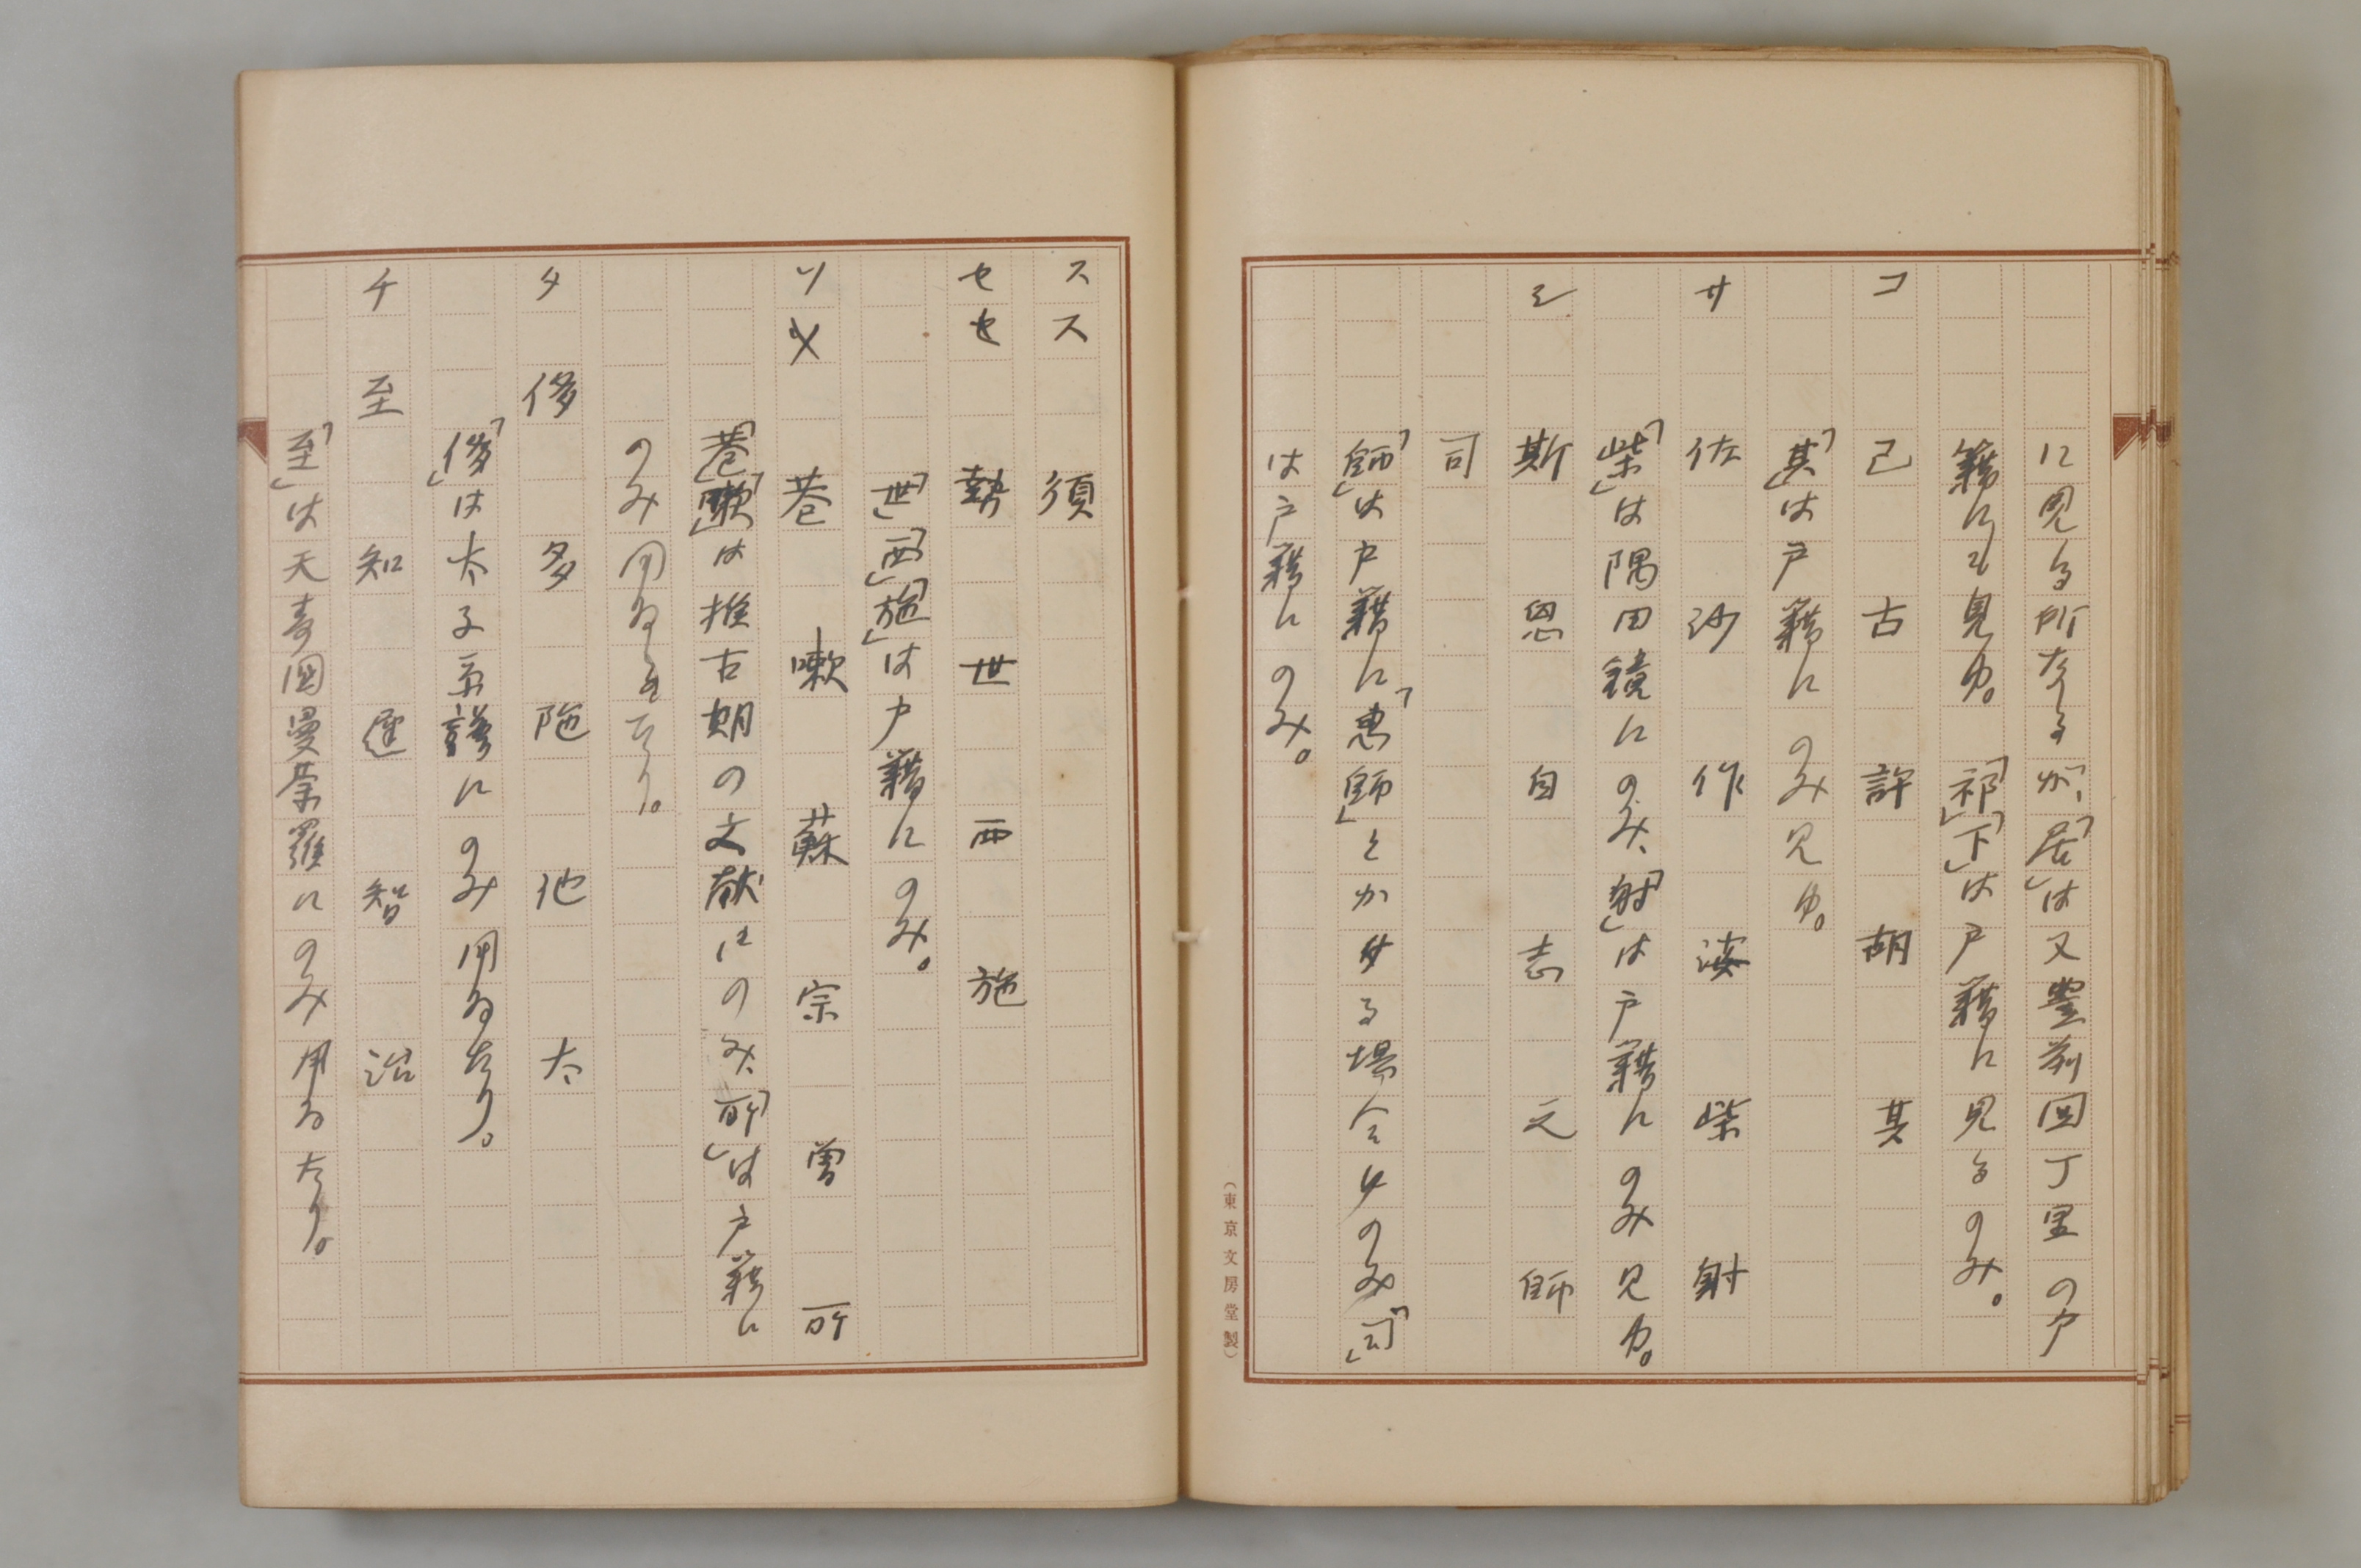 に見る所なるが、「居」は又豊前国丁里の戸
籍にも見ゆ。「祁」「下」は戸籍に見るのみ。
コ 己 古 許 胡 其
「其」は戸籍にのみ見ゆ。
サ 佐 沙 作 柴 射
「柴」は隅田鏡にのみ、「射」は戸籍にのみ見ゆ。
シ 斯 恩 自 志 之 師
司
「師」は戸籍に「恵師」とかける場合にのみ「司」
は戸籍にのみ。
(東京文房堂製)
ス ス 須
セ せ 勢 世 西 施
「世」「西」「施」は戸籍にのみ。
ソ 巷 嗽 蘇 宗 曽 所
「巷」「嗽」は推古朝の文献にのみ、「所」は戸籍に
のみ用ゐるをたり。
タ 侈 多 陁 他 太
「侈」は太子系譜にのみ用ゐたり。
チ 至 知 遅 智 治
「至」は天寿国曼荼羅にのみ用ゐたり。